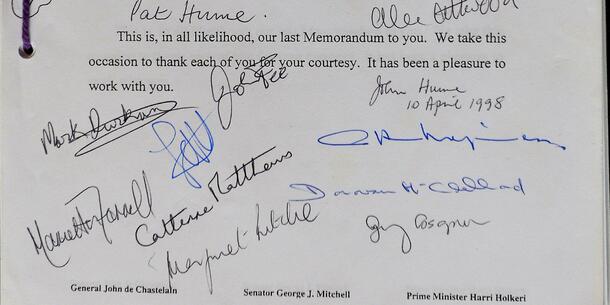 Pat Hume.
Alec Attwood
This is, in all likelihood, our last Memorandum to you. We take this
occasion to thank each of you for your courtesy. It has been a pleasure to
work with you.
John Fee
John Hume
10 April 1998
Mark Durkan
Donovan McClelland
Catherine Matthews
Margaret Ritchie
General John de Chastelain
Senator George J. Mitchell
Prime Minister Harri Holkeri